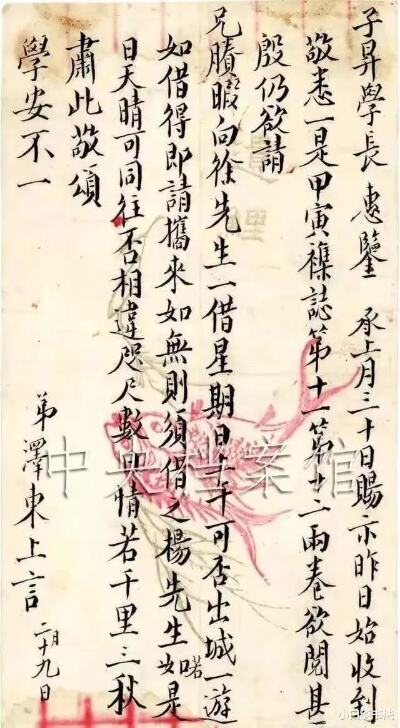 子昇學長惠鑒 承上月三十日賜示昨日始收到
敬悉一是甲寅襍誌第十一第十二兩卷欲閱甚
殷仍欲請
兄賸暇向徐先生一借星期日上午可否出城一遊
如借得即請攜來如無則須借之楊先生如若是
日天晴可同往否相違咫尺數日情若千里三秋
肅此敬頌
學安不一
弟澤東上言 二月十九日
中央档案馆